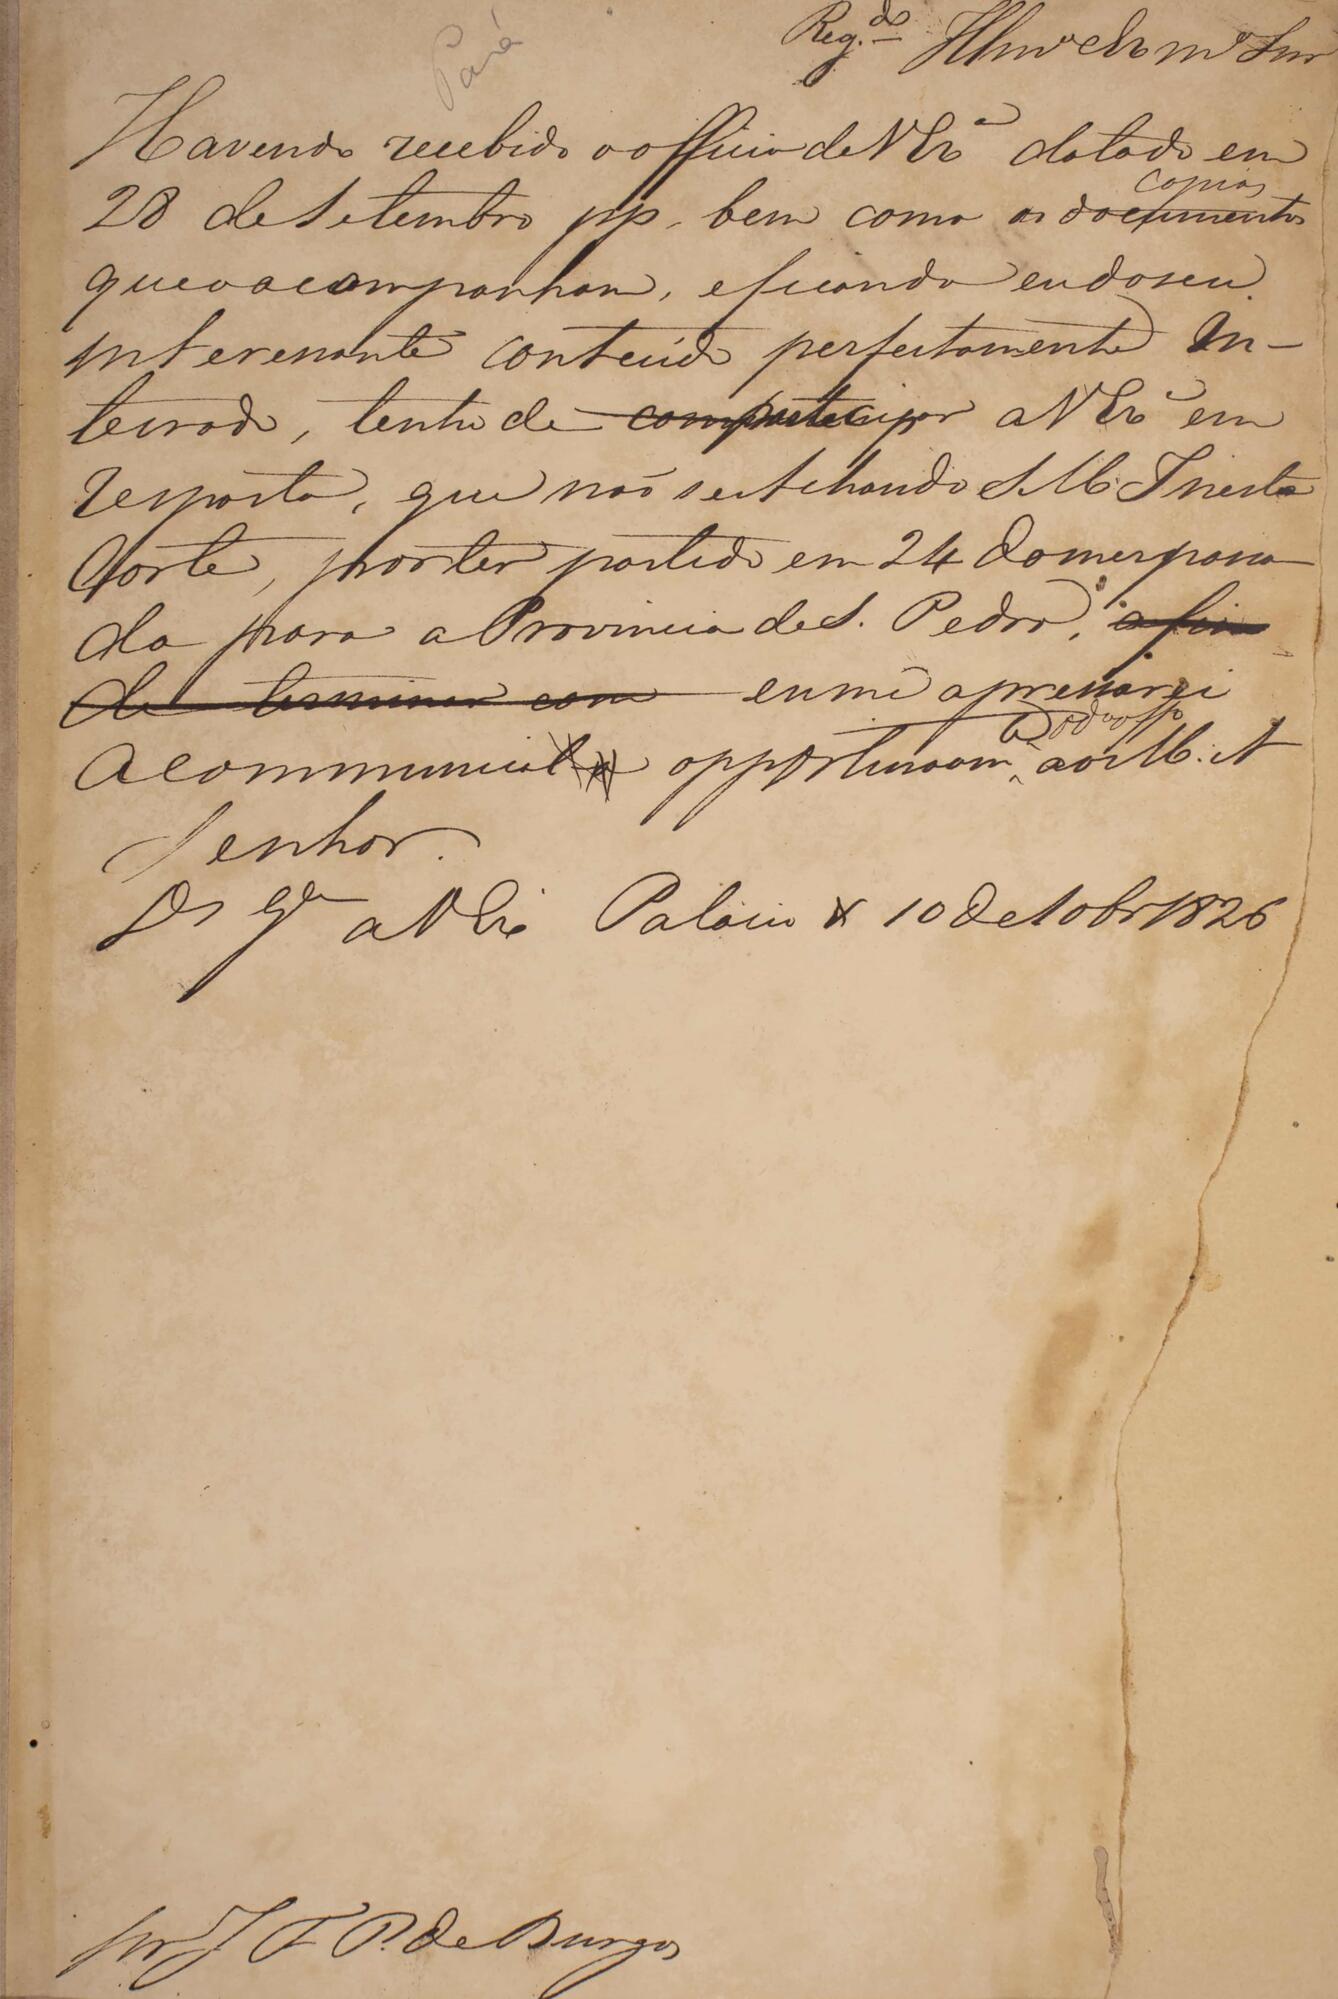 Pará
Reg.do Illmo e Exmo Snr
Havendo recebido o officio de V Exa datado em
copias
28 de Setembro pp. bem como os documentos
que o acompanhão, e ficando eu do seu
interessante conteúdo perfeitamente In-
teirado, tenho de participar a V Exa em
resposta, que não se achando S. M. I nesta
Corte, por ter partido em 24 do mes passa
do para a Provincia de S. Pedro, a fim
de terminar com eu me apressarei
a communical opportunam.e a S M. o
Senhor.
Ds Gde a V Exa Palacio 10 de 10br 1826
pr J F P. de Burgos